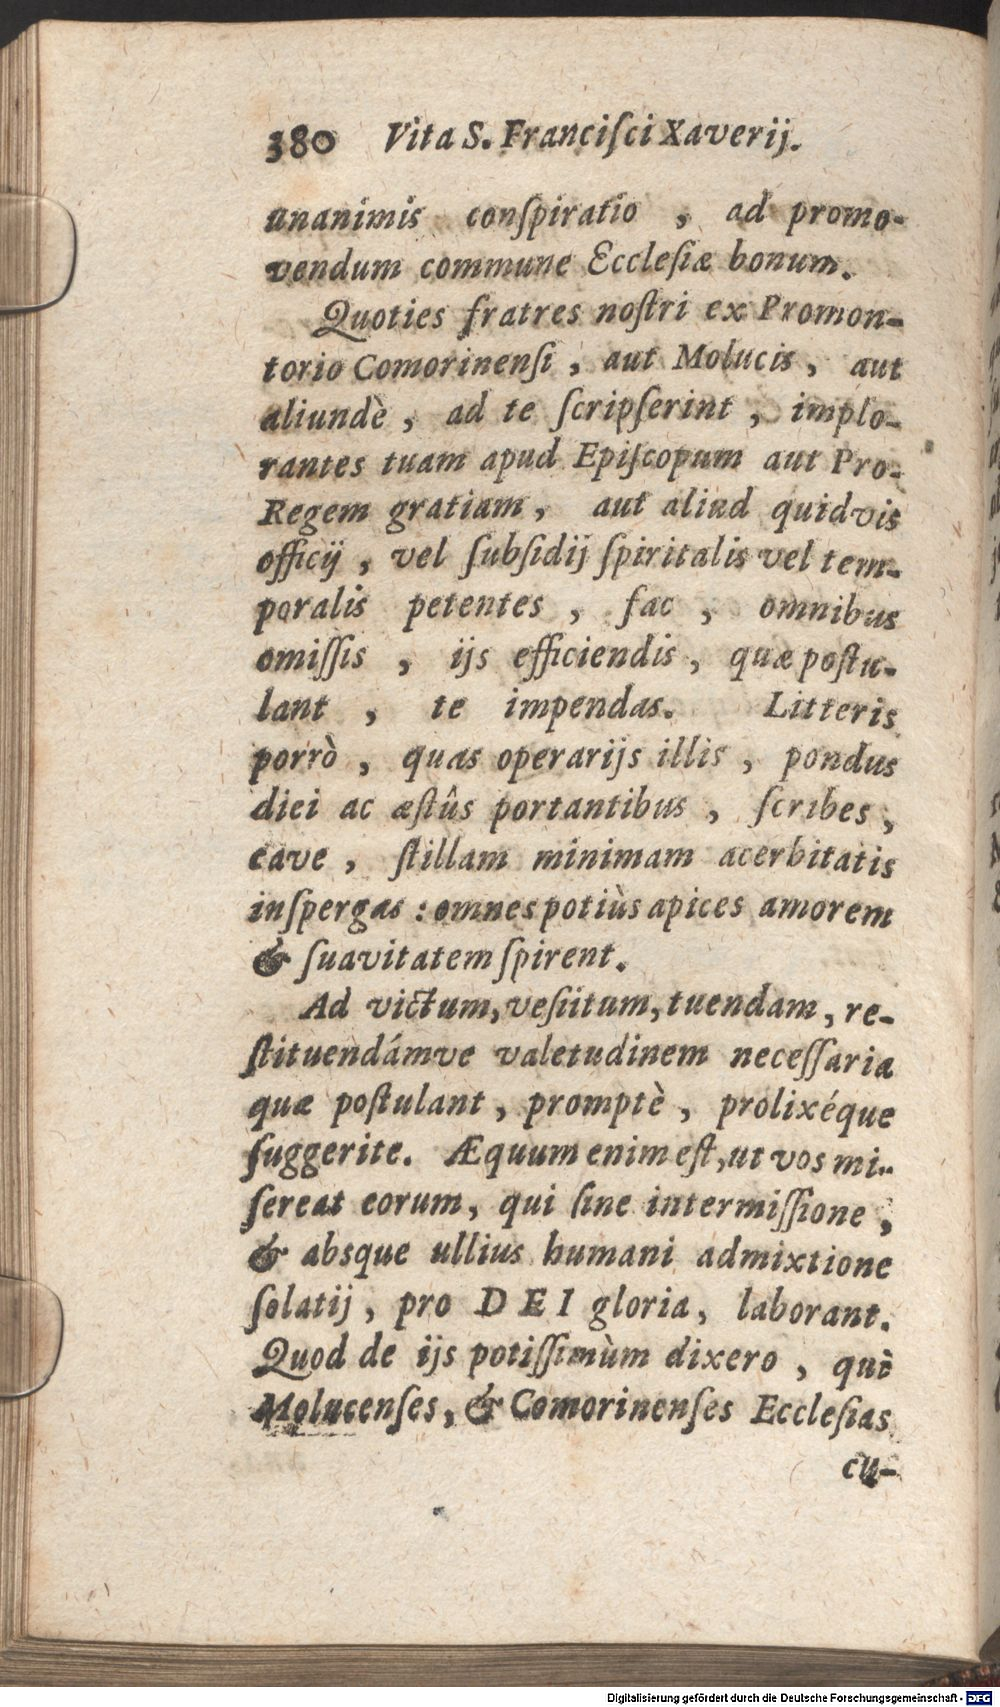 380 Vita S. Franciſci Xaverij.
unanimis conſpiratio , ad promo-
vendum commune Eccleſiæ bonum.
Quoties fratres noſtri ex Promon-
torio Comorinenſi , aut Molucis , aut
aliundè , ad te ſcripſerint , implo-
rantes tuam apud Epiſcopum aut Pro-
Regem gratiam , aut aliud quidvis
officij , vel ſubſidij ſpiritalis vel tem-
poralis petentes , fac , omnibus
omiſſis , ijs efficiendis , quæ poſtu-
lant , te impendas. Litteris
porrò , quas operarijs illis , pondus
diei ac æſtûs portantibus , ſcribes ,
cave , ſtillam minimam acerbitatis
inſpergas : omnes potiùs apices amorem
& ſuavitatem ſpirent.
Ad victum, veſtitum, tuendam , re-
ſtituendámve valetudinem neceſſaria
quæ poſtulant , promptè , prolixéque
ſuggerite. Æquum enim eſt, ut vos mi-
ſereat eorum , qui ſine intermiſſione ,
& absque ullius humani admixtione
ſolatij , pro DEI gloria , laborant.
Quod de ijs potiſſimùm dixero , qui
Molucenſes, & Comorinenſes Eccleſias
cu-
Digitalisierung gefördert durch die Deutsche Forschungsgemeinschaft - DFG